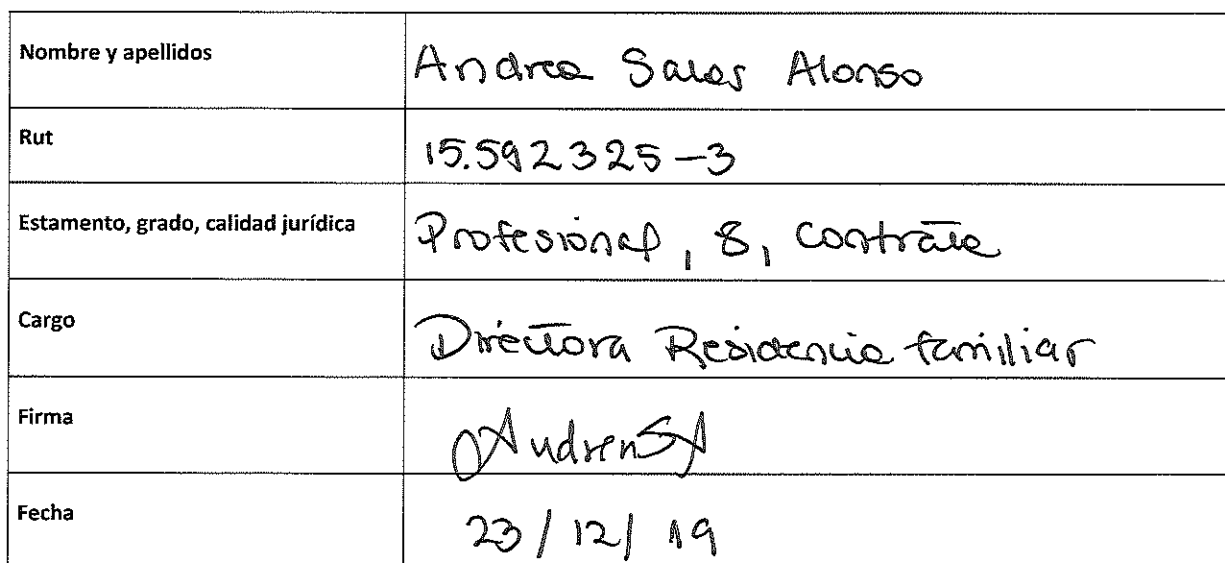 Nombre y apellidos
Andrea Salas Alonso
Rut
15.592325-3
Estamento, grado, calidad jurídica
Profesional, 8, contrata
Cargo
Directora Residencia familiar
Firma
AndreaSA
Fecha
23/12/19